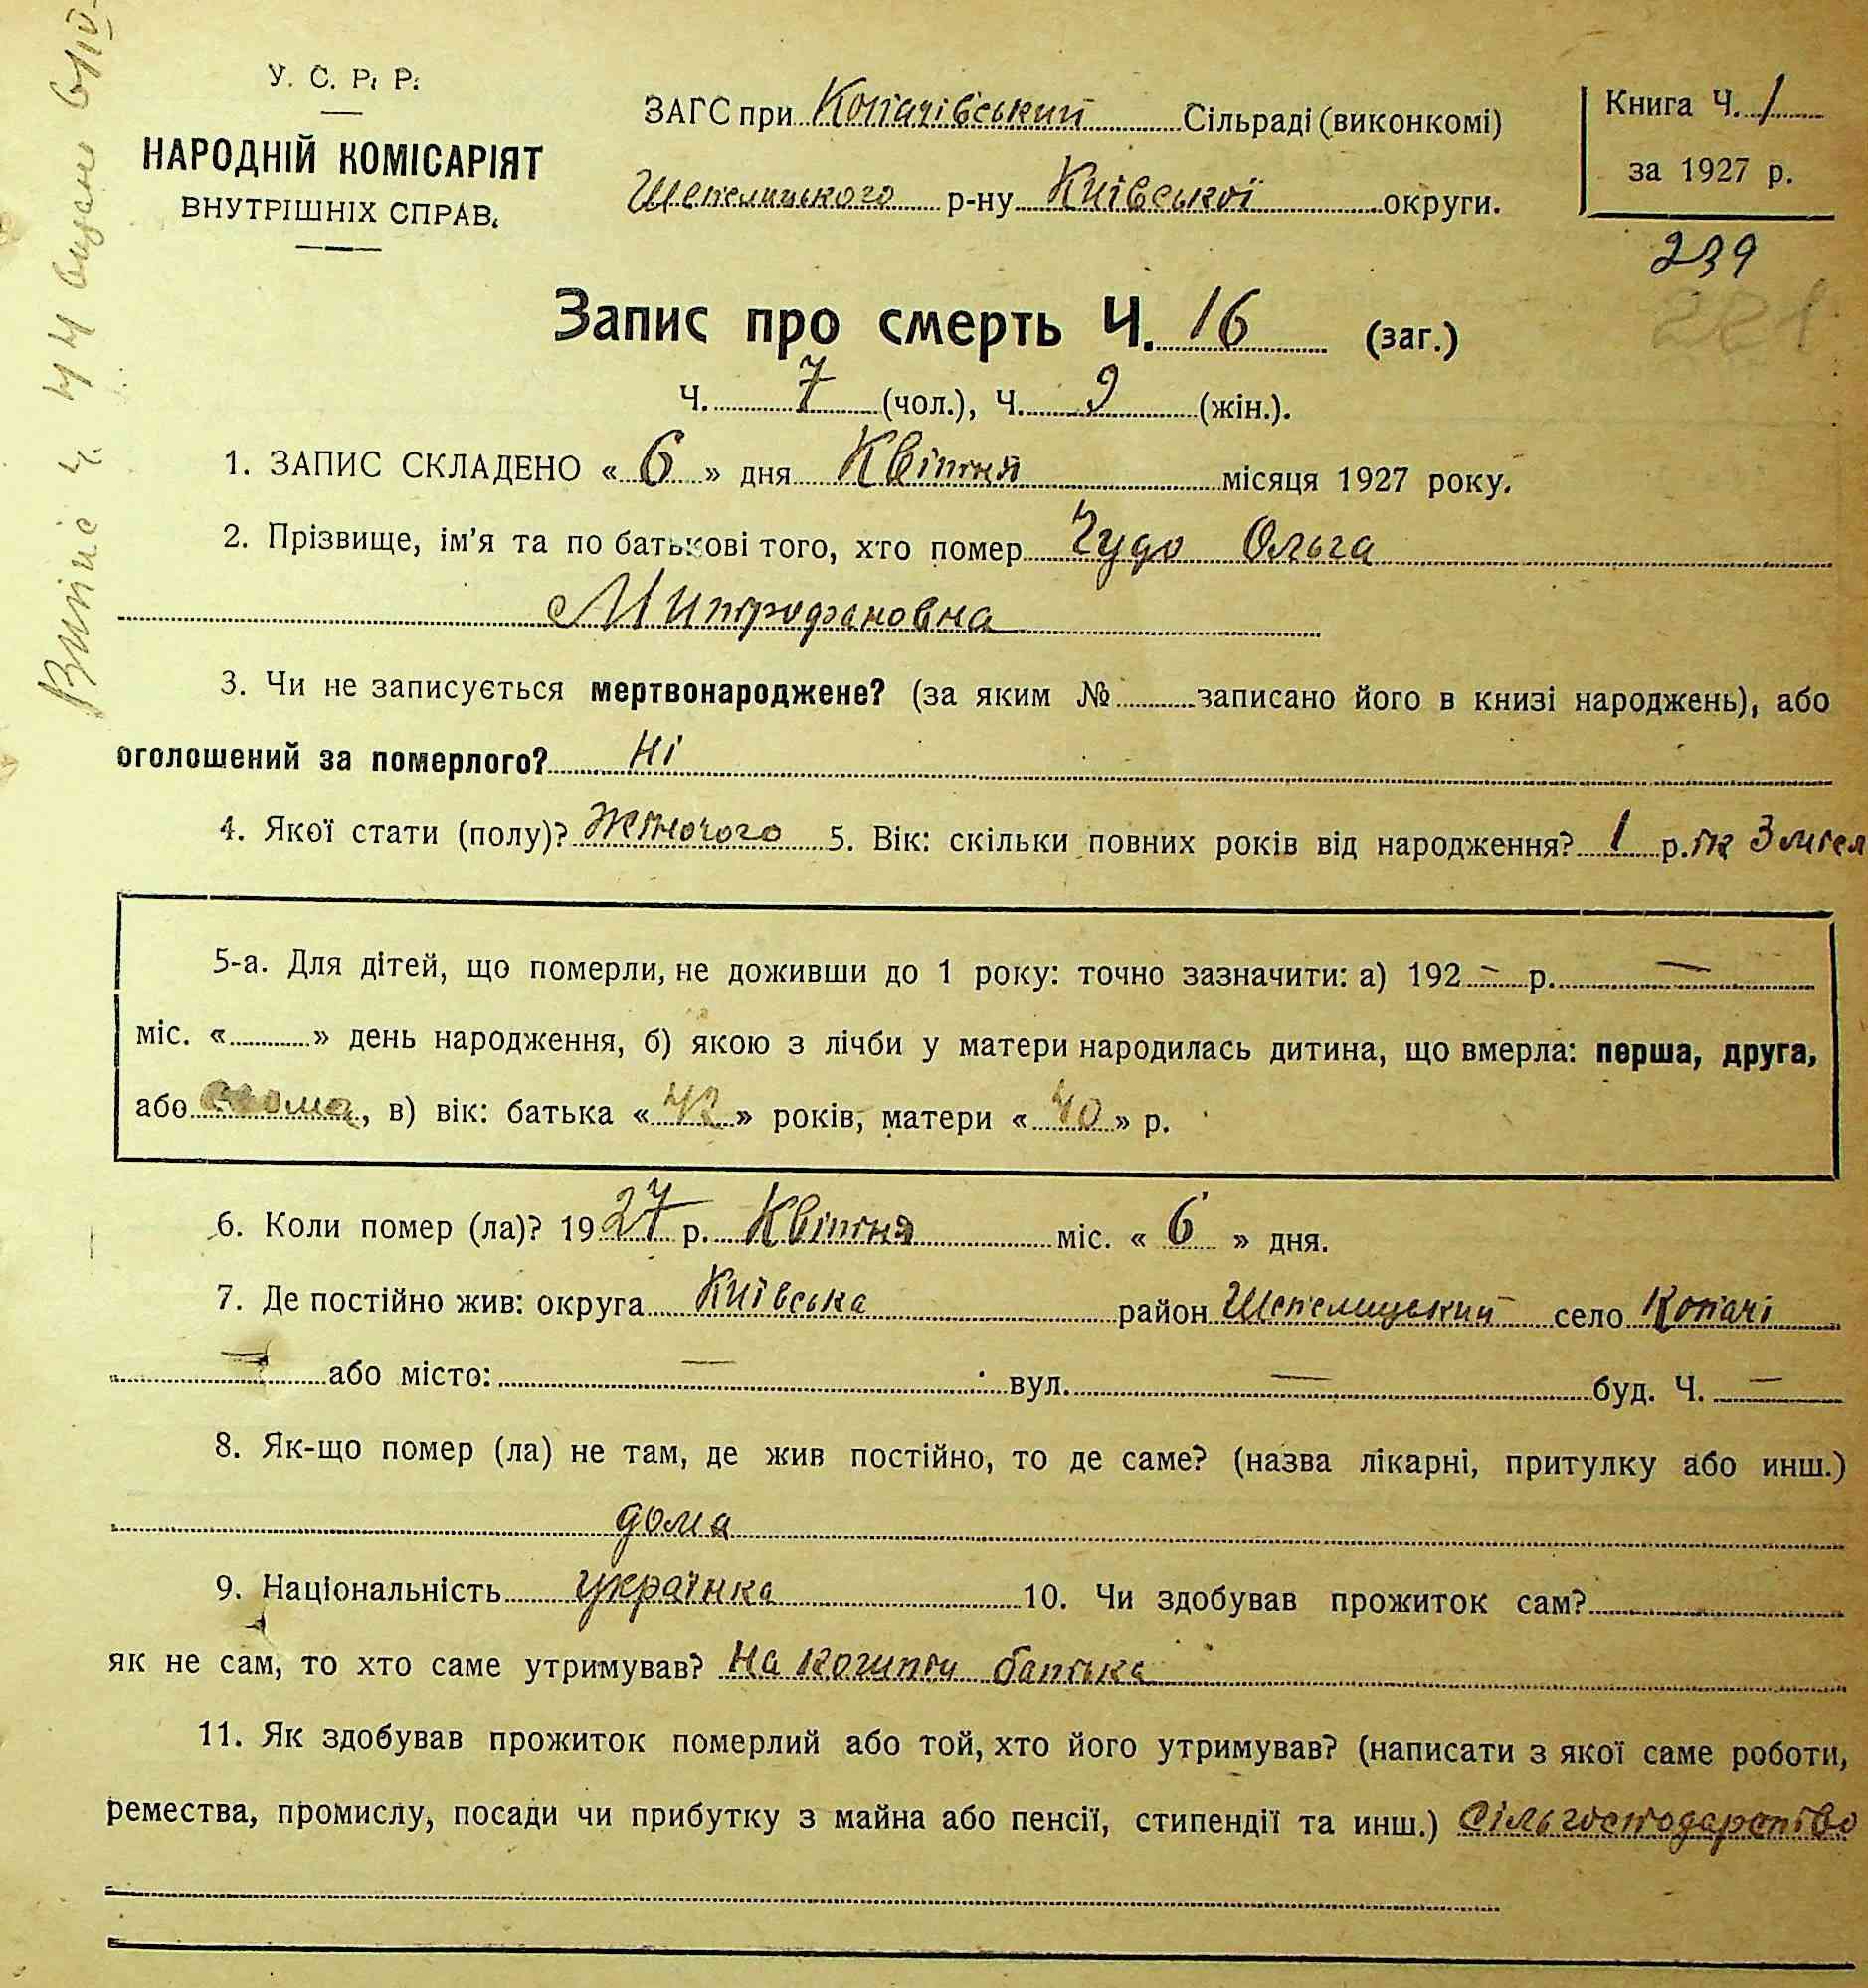 У. С. Р. Р.
НАРОДНІЙ КОМІСАРІЯТ
ВНУТРІШНІХ СПРАВ.
ЗАГС при Копачівський Сільраді (виконкомі)
Шепелицького р-ну Київської округи.
Книга Ч. 1
за 1927 р.
239
221
Запис про смерть Ч. 16 (заг.)
Ч. 7 (чол.), Ч. 9 (жін.).
1. ЗАПИС СКЛАДЕНО « 6 » дня Квітня місяця 1927 року.
2. Прізвище, ім'я та по батькові того, хто помер Чудо Ольга
Митрофановна
3. Чи не записується мертвонароджене? (за яким № записано його в книзі народжень), або
оголошений за померлого? Ні
4. Якої стати (полу)? Жіночого 5. Вік: скільки повних років від народження? 1 р. 3
5-а. Для дітей, що померли, не доживши до 1 року: точно зазначити: а) 192 – р. —
міс. « » день народження, б) якою з лічби у матери народилась дитина, що вмерла: перша, друга,
або , в) вік: батька « 42 » років, матери « 40 » р.
6. Коли помер (ла)? 1927 р. Квітня міс. « 6 » дня.
7. Де постійно жив: округа Київська район Шепелицький село Копачі
— або місто: — вул. — буд. Ч. —
8. Як-що помер (ла) не там, де жив постійно, то де саме? (назва лікарні, притулку або инш.)
дома
9. Національність українка 10. Чи здобував прожиток сам?
як не сам, то хто саме утримував? На кошти батька
11. Як здобував прожиток померлий або той, хто його утримував? (написати з якої саме роботи,
ремества, промислу, посади чи прибутку з майна або пенсії, стипендії та инш.) Сільгосподарство
Випис ч. 44 видано